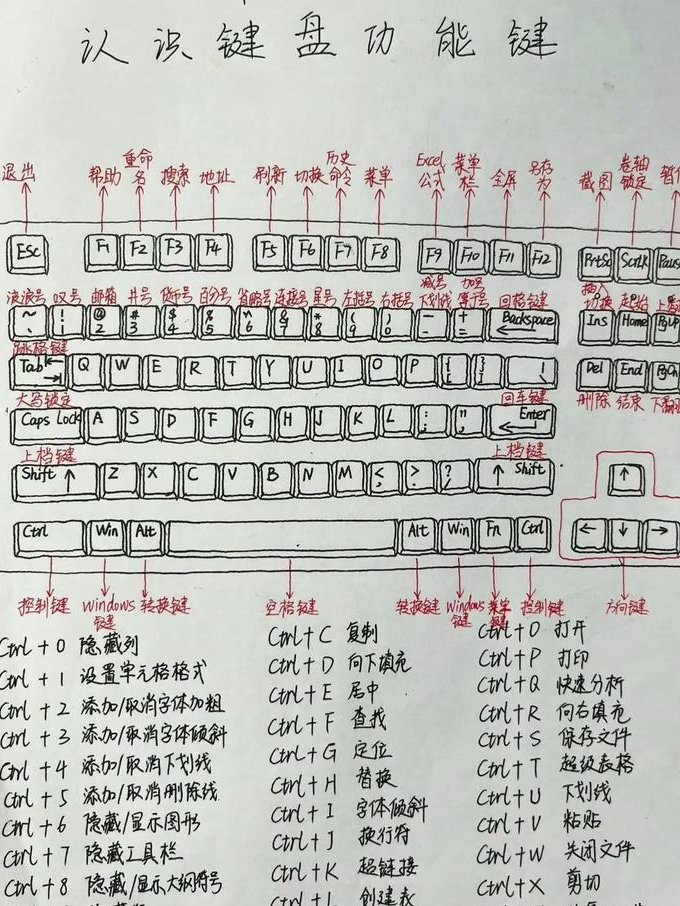 认识键盘功能键
退出 帮助 重命名 搜索 地址 刷新 切换 历史命令 菜单 Excel公式 菜单栏 全屏 另存为 截图 卷轴锁定
Esc F1 F2 F3 F4 F5 F6 F7 F8 F9 F10 F11 F12 PrtSc ScrLK Paus
波浪号 叹号 邮箱 井号 货币号 百分号 省略号 连接号 星号 左括号 右括号 减号下划线 加号等于号 回格键 插入切换 起始
~ ` ! 1 @ 2 # 3 $ 4 % 5 ^ 6 & 7 * 8 ( 9 ) 0 - + = Backspace Ins Home PgUp
跳格键
Tab Q W E R T Y U I O P { [ } ] | \ Del End PgDn
大写锁定 回车键 删除 结束
Caps Lock A S D F G H J K L : ; " , Enter
上档键 上档键
Shift ↑ Z X C V B N M < , > . ? / ↑ Shift ↑
Ctrl Win Alt Alt Win Fn Ctrl ← ↓ →
控制键 Windows键 转换键 空格键 转换键 Windows键 菜单键 控制键 方向键
Ctrl + 0 隐藏列 Ctrl + C 复制 Ctrl + O 打开
Ctrl + 1 设置单元格格式 Ctrl + D 向下填充 Ctrl + P 打印
Ctrl + 2 添加/取消字体加粗 Ctrl + E 居中 Ctrl + Q 快速分析
Ctrl + 3 添加/取消字体倾斜 Ctrl + F 查找 Ctrl + R 向右填充
Ctrl + 4 添加/取消下划线 Ctrl + G 定位 Ctrl + S 保存文件
Ctrl + 5 添加/取消删除线 Ctrl + H 替换 Ctrl + T 超级表格
Ctrl + 6 隐藏/显示图形 Ctrl + I 字体倾斜 Ctrl + U 下划线
Ctrl + 7 隐藏工具栏 Ctrl + J 换行符 Ctrl + V 粘贴
Ctrl + 8 隐藏/显示大纲符号 Ctrl + K 超链接 Ctrl + W 关闭文件
Ctrl + L 创建表 Ctrl + X 剪切